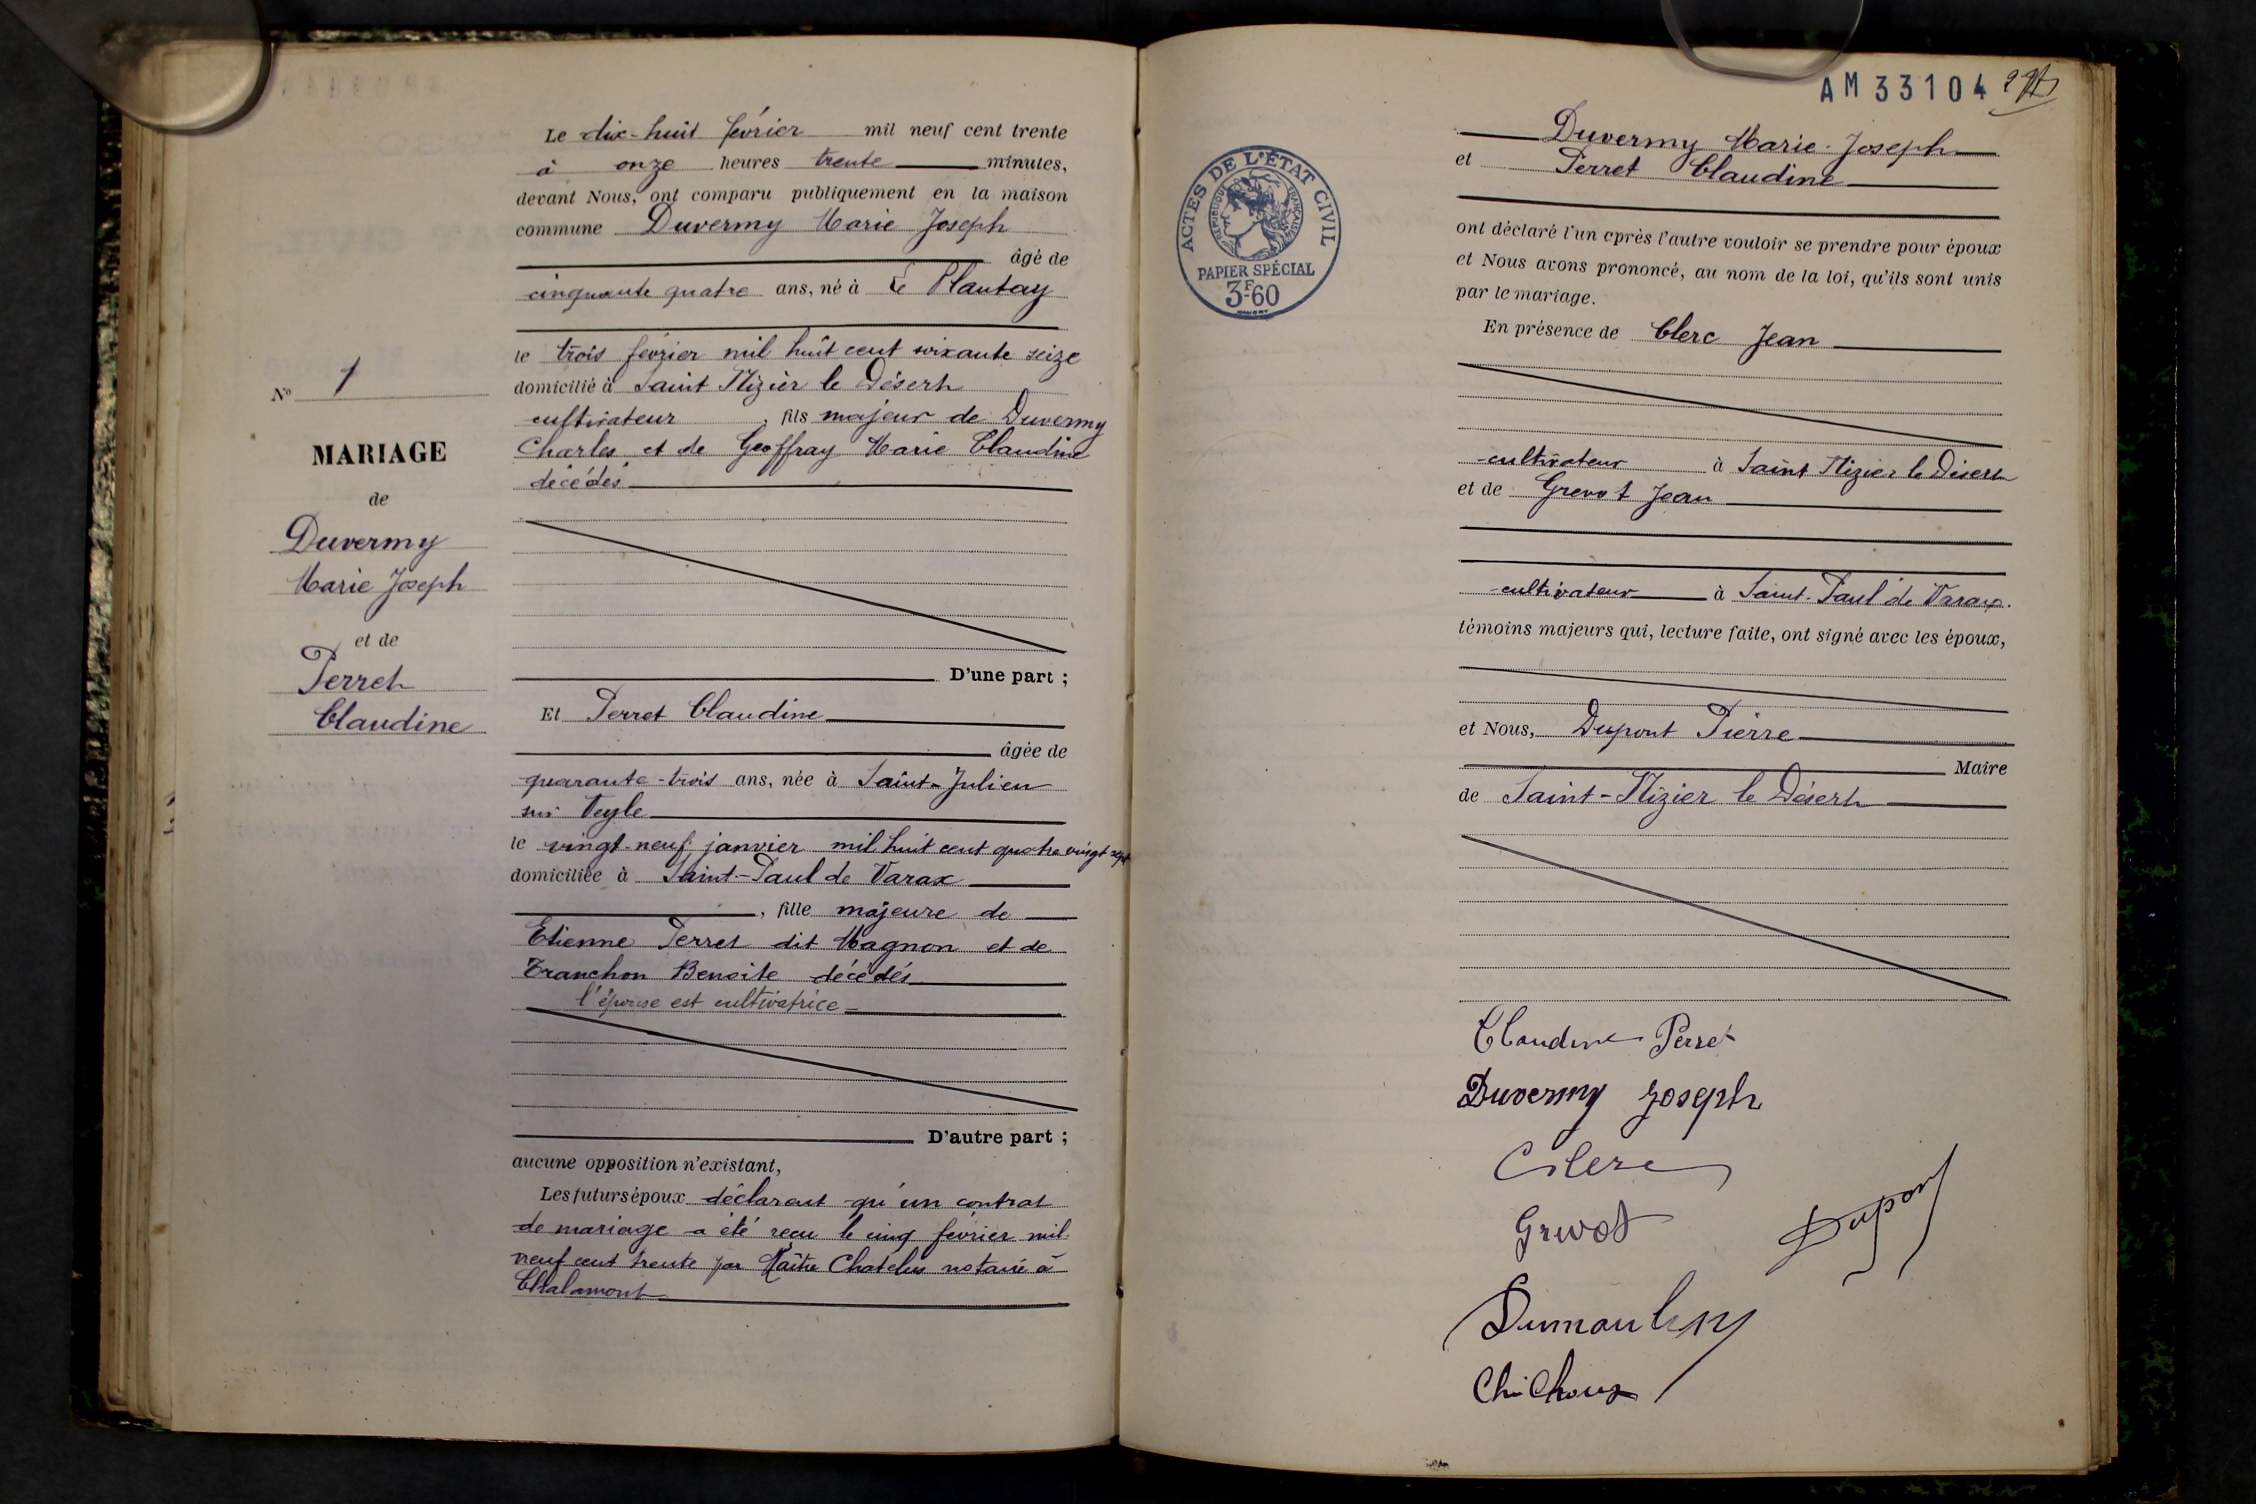 Le dix-huit février mil neuf cent trente
à onze heures trente minutes,
devant Nous, ont comparu publiquement en la maison
commune Duvermy Marie Joseph
âgé de
cinquante quatre ans, né à Le Plantay
le trois février mil huit cent soixante seize
domicilié à Saint Nizier le Désert
cultivateur, fils majeur de Duvermy
Charles et de Geoffray Marie Claudine
décédés
D'une part ;
Et Perret Claudine
âgée de
quarante-trois ans, née à Saint-Julien
sur Veyle
le vingt-neuf janvier mil huit cent quatre vingt sept
domiciliée à Saint-Paul de Varax
, fille majeure de
Etienne Perret dit Magnon et de
Tranchon Benoite décédés
l'épouse est cultivatrice
D'autre part ;
aucune opposition n'existant,
Les futurs époux déclarent qu'un contrat
de mariage a été reçu le cinq février mil
neuf cent trente par Maître Chatelus notaire à
Chalamont
No 1
MARIAGE
de
Duvermy
Marie Joseph
et de
Perret
Claudine
AM 33104
ACTES DE L'ÉTAT CIVIL
RÉPUBLIQUE FRANÇAISE
PAPIER SPÉCIAL
3F60
Duvermy Marie-Joseph
et Perret Claudine
ont déclaré l'un cprès l'autre vouloir se prendre pour époux
et Nous avons prononcé, au nom de la loi, qu'ils sont unis
par le mariage.
En présence de Clerc Jean
cultivateur à Saint Nizier le Désert
et de Grevot Jean
cultivateur à Saint-Paul de Varax.
témoins majeurs qui, lecture faite, ont signé avec les époux,
et Nous, Dupont Pierre
Maire
de Saint-Nizier le Désert
Claudine Perret
Duvermy Joseph
Clerc
Grevot
Dupont